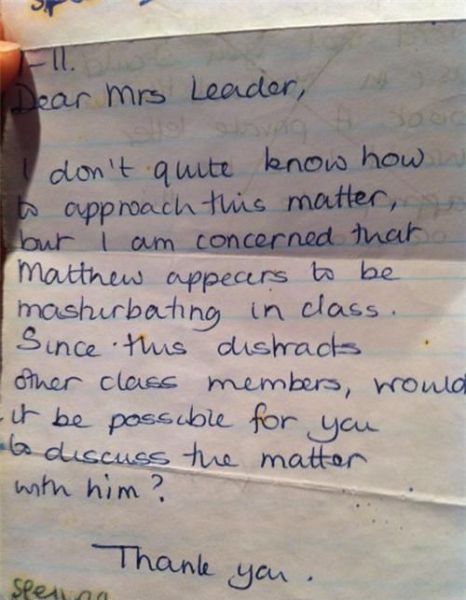 1-11.
Dear Mrs Leader,
I don't quite know how
to approach this matter,
but I am concerned that
Matthew appears to be
masturbating in class.
Since this distracts
other class members, would
it be possible for you
to discuss the matter
with him?
Thank you.